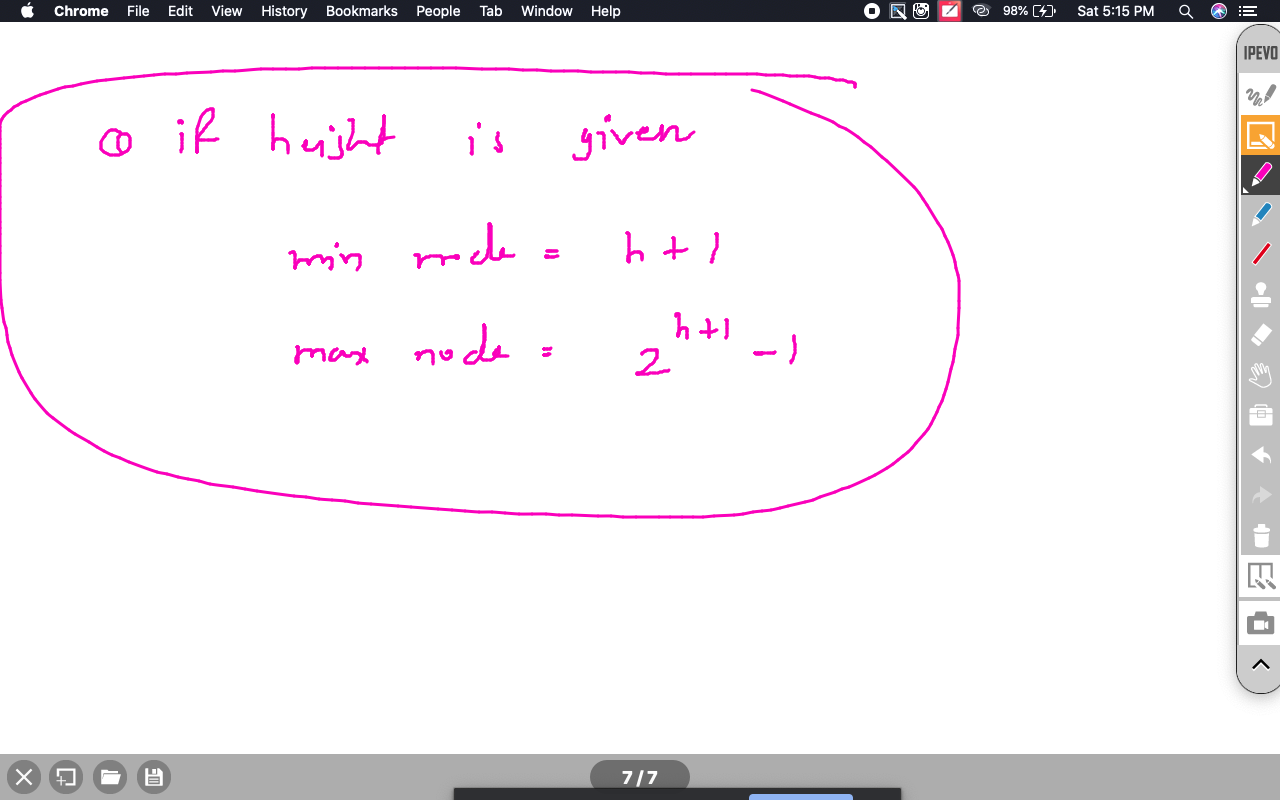 Chrome File Edit View History Bookmarks People Tab Window Help 98% Sat 5:15 PM
IPEVO
① if height is given
min node = h+1
max node = 2^{h+1} -1
7 / 7